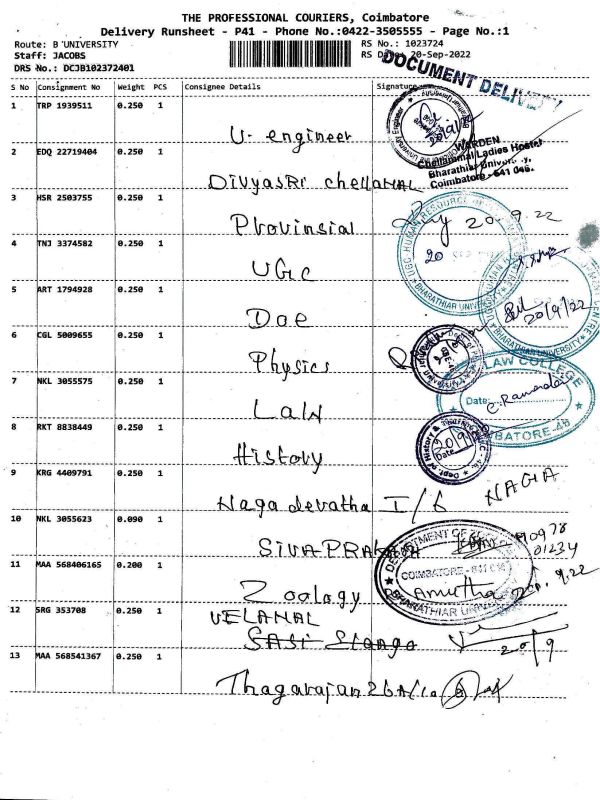 THE PROFESSIONAL COURIERS, Coimbatore
Delivery Runsheet - P41 - Phone No.:0422-3505555 - Page No.:1
Route: B UNIVERSITY
RS No.: 1023724
Staff: JACOBS
RS Date: 20-Sep-2022
DRS No.: DCJB102372401
DOCUMENT DELIVERY
S No Consignment No Weight PCS Consignee Details Signature
1 TRP 1939511 0.250 1
U. engineer
20/9/22
WARDEN
Chellammal Ladies Hostel
Bharathiar University,
Coimbatore - 641 046.
2 EDQ 22719404 0.250 1
DIVYASRI chellamAL
3 HSR 2503755 0.250 1
Provinsial
20.9.22
4 TNJ 3374582 0.250 1
UGC
20 SEP
BHARATHIAR UNIVERSITY
5 ART 1794928 0.250 1
Doe
20/9/22
BHARATHIAR UNIVERSITY
6 CGL 5009655 0.250 1
Physics
7 NKL 3055575 0.250 1
LAW
LAW COLLEGE
Date:
COIMBATORE-46
8 RKT 8838449 0.250 1
History
Dept. of History &
20/9
Date
9 KRG 4409791 0.250 1
Naga devatha I/6
NAGA
10 NKL 3055623 0.090 1
SIVA PRAKASH
01234
11 MAA 568406165 0.200 1
Zoology
DEPARTMENT OF ZOOLOGY
COIMBATORE - 641 046
Amutha
BHARATHIAR UNIVERSITY
12 SRG 353708 0.250 1
VELAMAL
20/9
13 MAA 568541367 0.250 1
Thagarajan